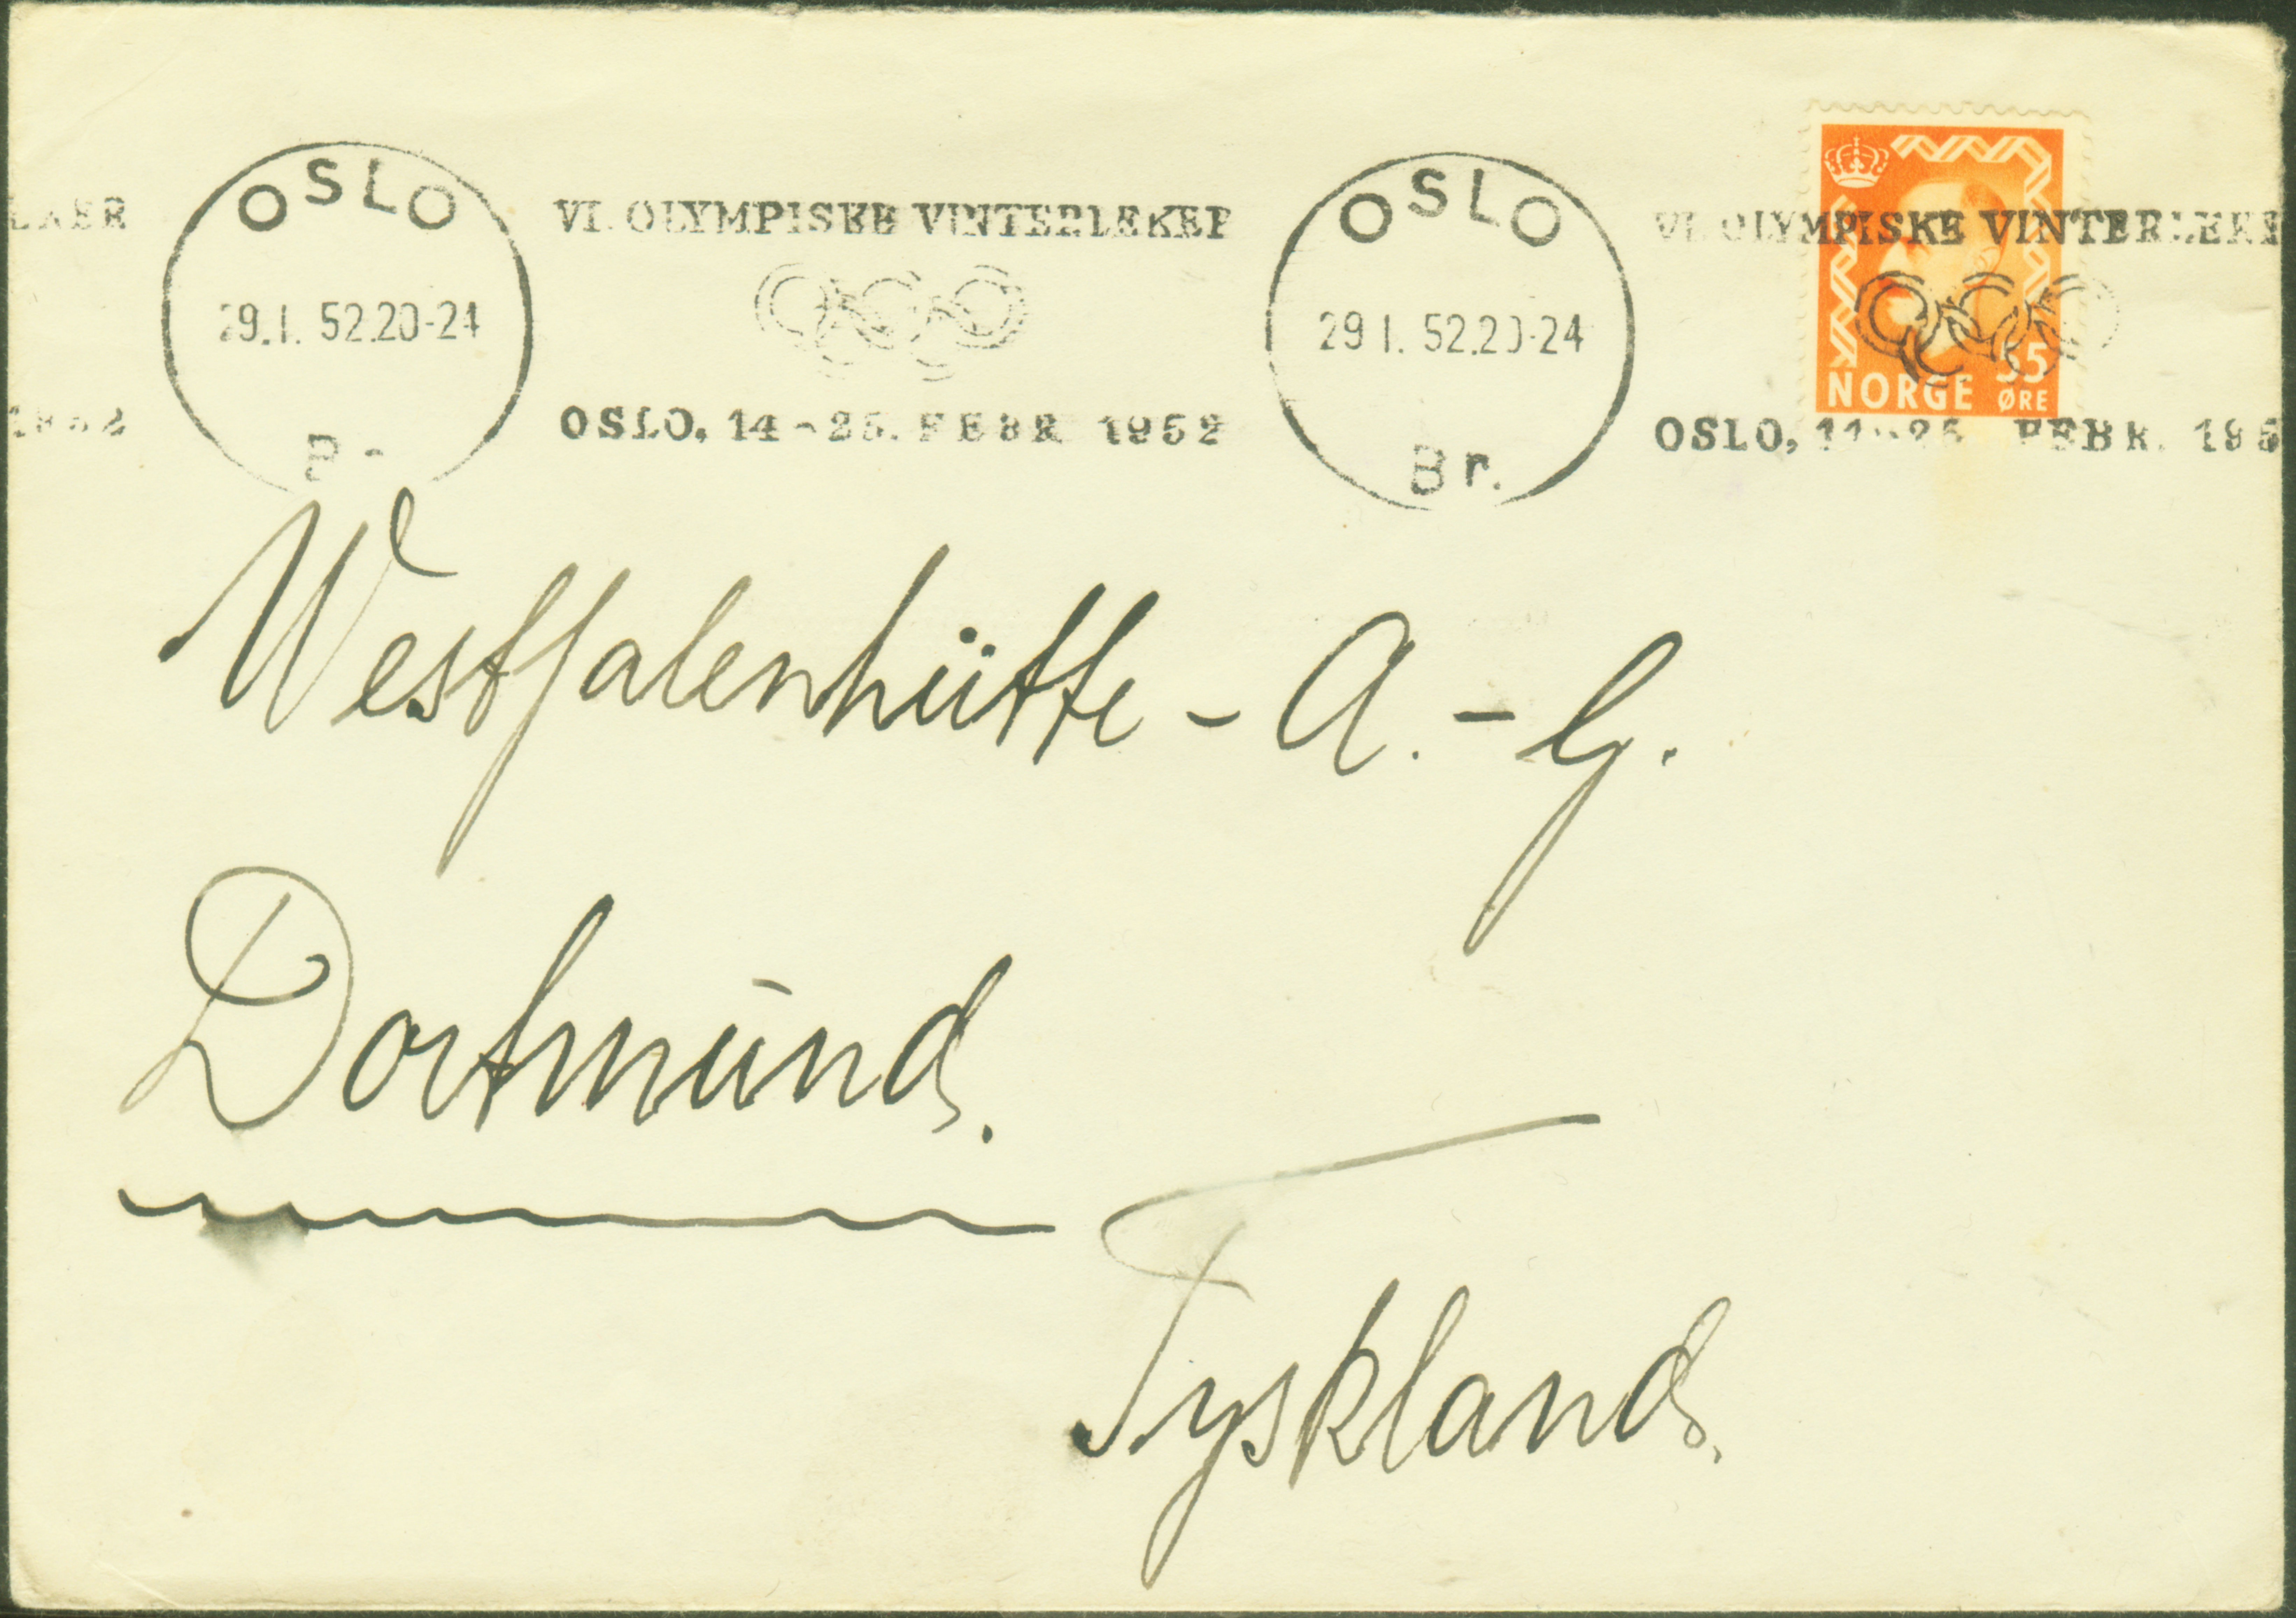 OSLO
29.I. 52.20-24
Br.
VI. OLYMPISKE VINTERLEKER
OSLO, 14-25. FEBR. 1952
OSLO
29.I. 52.20-24
Br.
VI. OLYMPISKE VINTERLEKE
OSLO, 14-25. FEBR. 195
NORGE 55
ØRE
Westfalenhütte-A.-G.
Dortmund.
Tyskland.